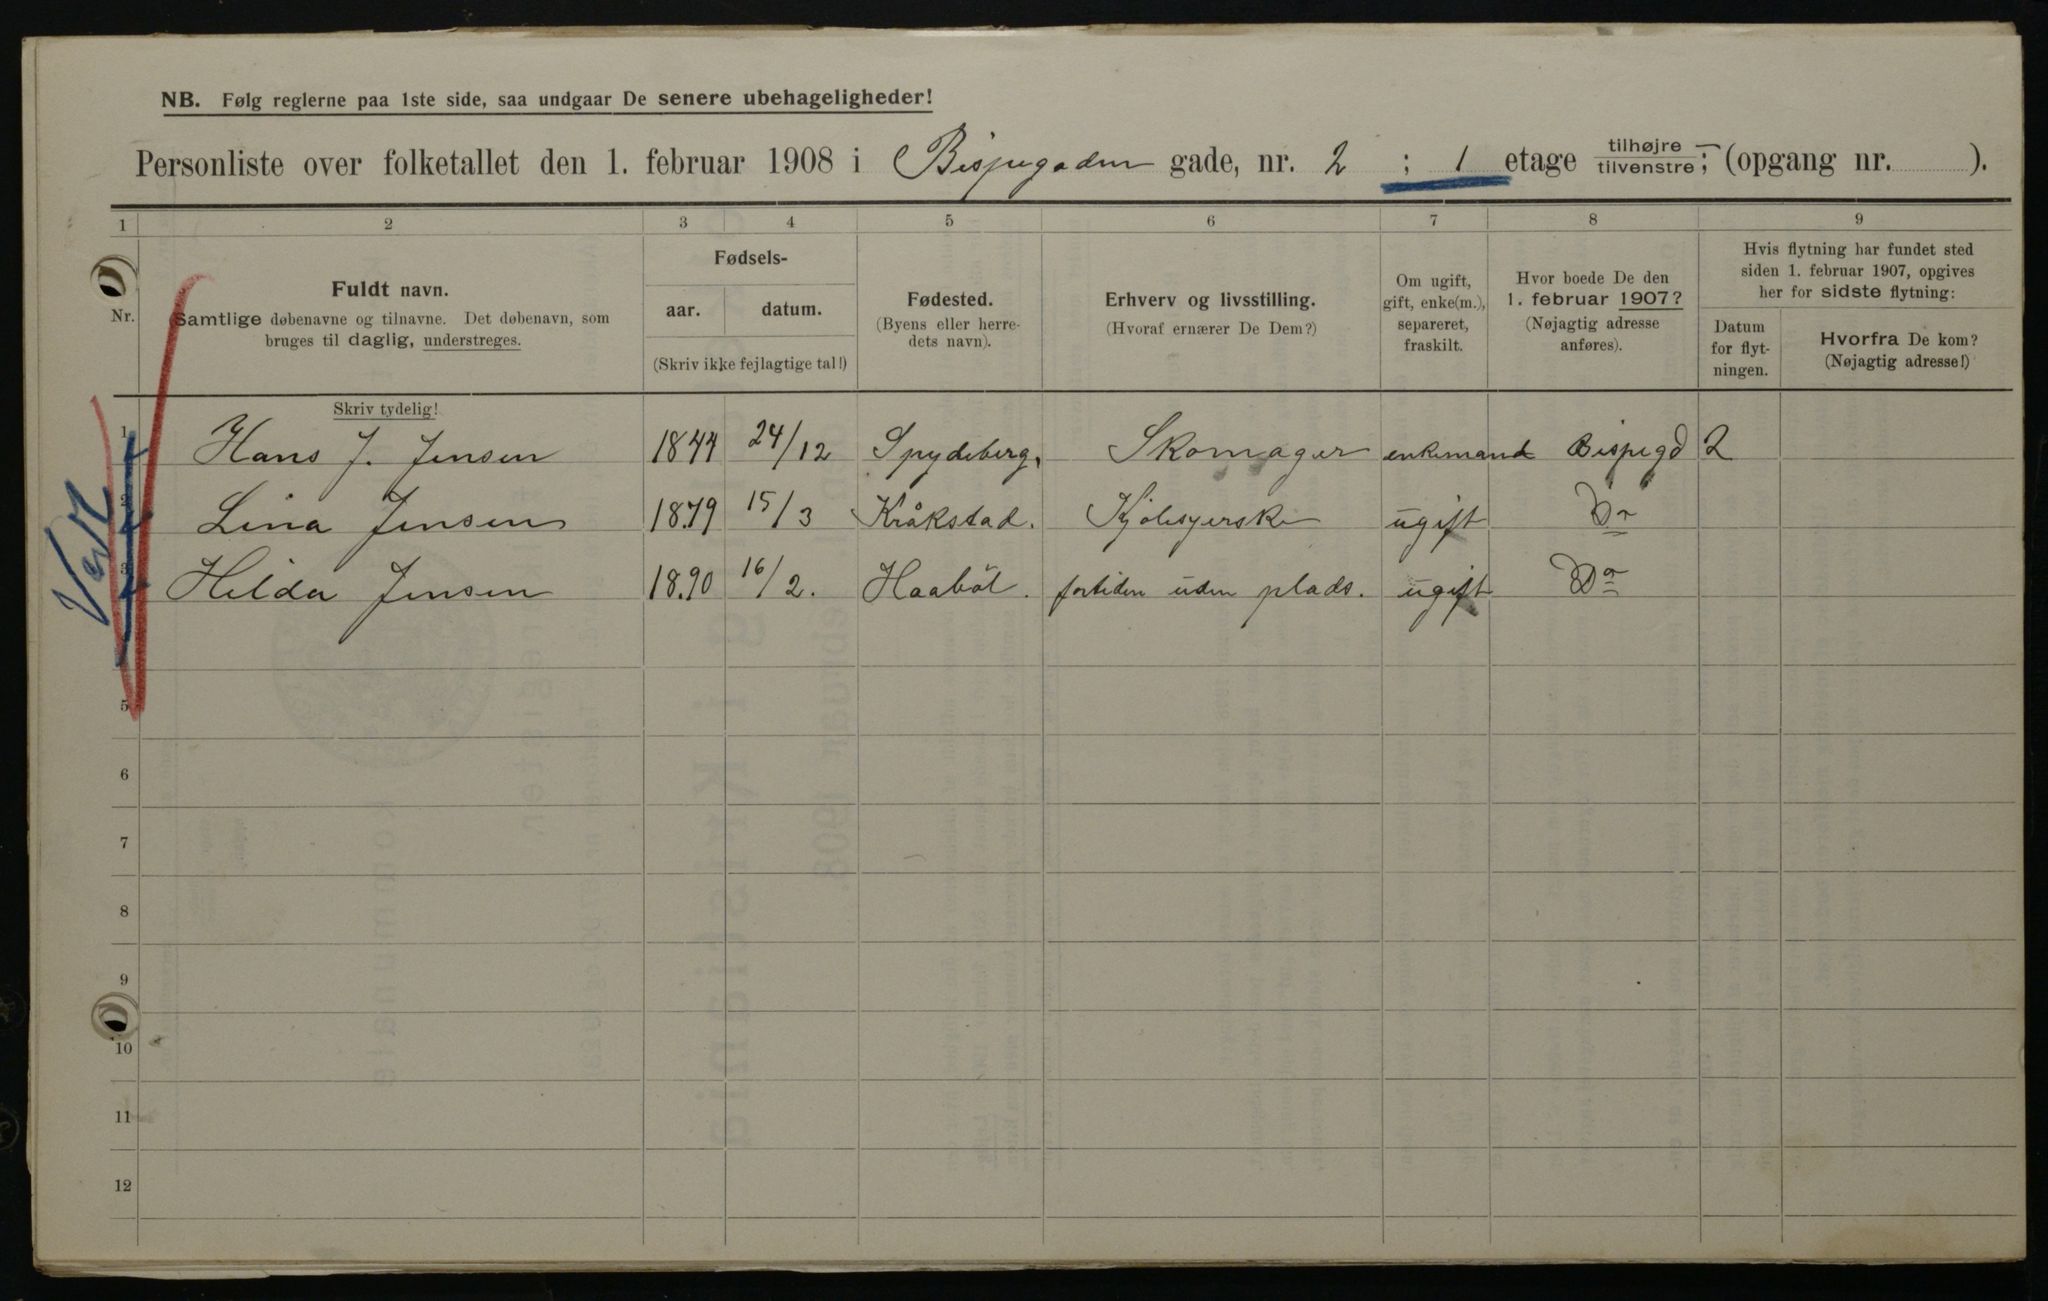 NB. Følg reglerne paa 1ste side, saa undgaar De senere ubehageligheder!
Personliste over folketallet den 1. februar 1908 i Bispegaden gade, nr. 2 ; 1 etage tilhøjre/tilvenstre; (opgang nr. ).
1 2 3 4 5 6 7 8 9
Nr.
Fuldt navn.
(Samtlige døbenavne og tilnavne. Det døbenavn, som
bruges til daglig, understreges.
Skriv tydelig!
Fødsels-
aar. datum.
(Skriv ikke fejlagtige tal!)
Fødested.
(Byens eller herre-
dets navn).
Erhverv og livsstilling.
(Hvoraf ernærer De Dem?)
Om ugift,
gift, enke(m.),
separeret,
fraskilt.
Hvor boede De den
1. februar 1907?
(Nøjagtig adresse
anføres).
Hvis flytning har fundet sted
siden 1. februar 1907, opgives
her for sidste flytning:
Datum
for flyt-
ningen.
Hvorfra De kom?
(Nøjagtig adresse!)
1 Hans J. Jensen 1844 24/12 Spydeberg. Skomager enkemand Bispegd 2
2 Lina Jensen 1879 15/3 Kråkstad. Kjolesyerske ugift Do
3 Hilda Jensen 1890 16/2. Haaböl. fortiden uden plads. ugift Do
5
6
7
8
9
10
11
12